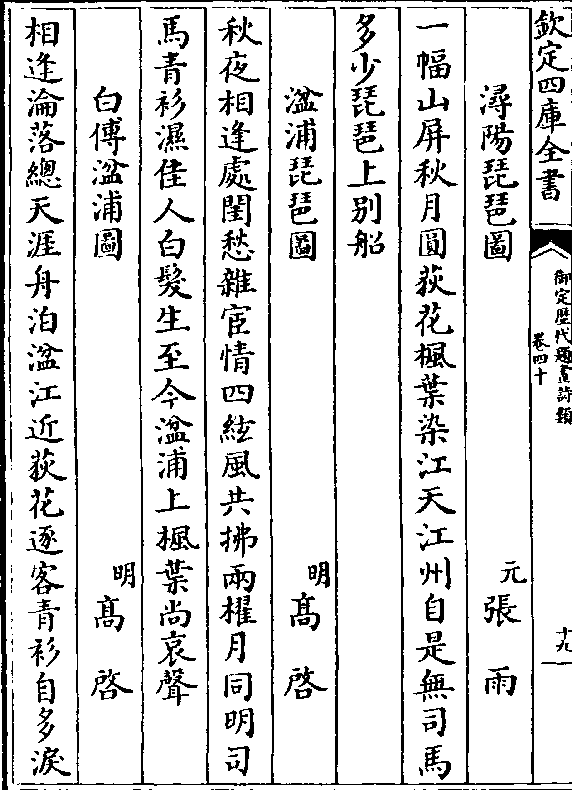 欽定四庫全書
御定歴代題畫詩類
卷四十
十九
潯陽琵琶圖
元 張雨
一幅山屏秋月圓荻花楓葉染江天江州自是無司馬
多少琵琶上別船
湓浦琵琶圖
明 髙啓
秋夜相逢處閨愁雜宦情四絃風共拂兩櫂月同明司
馬青衫濕佳人白髮生至今湓浦上楓葉尚哀聲
白傅湓浦圖
明 髙啓
相逢淪落總天涯舟泊湓江近荻花逐客青衫自多淚